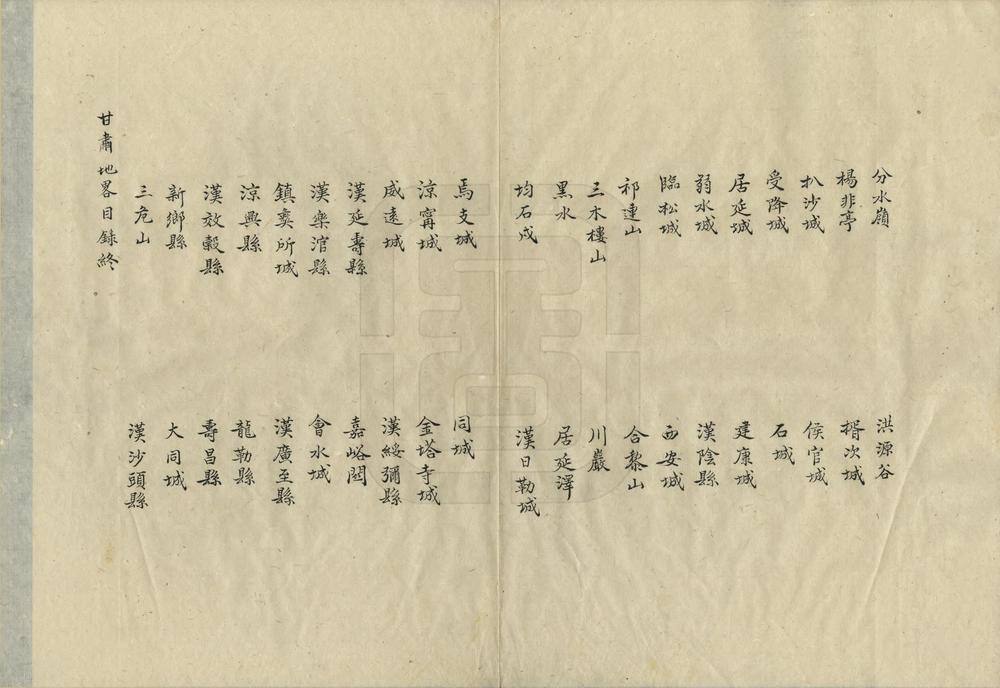 分水嶺
洪源谷
楊非亭
揟次城
扒沙城
侯官城
受降城
石城
居延城
建康城
弱水城
漢陰縣
臨松城
西安城
祁連山
合黎山
三木樓山
川巖
黑水
居延澤
均石戍
漢日勒城
焉支城
同城
涼甯城
金塔寺城
威遠城
漢綏彌縣
漢延壽縣
嘉峪関
漢樂涫縣
會水城
鎮夷所城
漢廣至縣
涼興縣
龍勒縣
漢效穀縣
壽昌縣
新鄉縣
大同城
三危山
漢沙頭縣
甘肅地畧目錄終